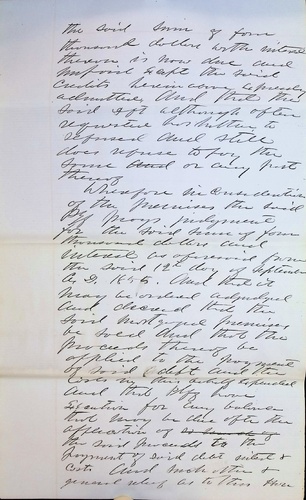 the said sum of four
thousand dollars with interest
thereon is now due and
unpaid except the said
credits herein above expressly
admitted And that the
said Deft although often
requested has hitherto
refused and still
does refuse to pay the
same or any part
thereof
Wherefore in consideration
of the premises the said
Plff prays judgment
for the said sum of four
thousand dollars and
interest as aforesaid from
the said 12th day of September
A.D. 1856. And that it
may be ordered adjudged
and decreed that the
said mortgaged premises
be sold and that the
proceeds thereof be
applied to the payment
of said debt and the
costs in this behalf expended
and that Plff have
Execution for any balance
that may be due after the
application of
the said proceeds to the
payment of said debt interest &
costs And such other &
general relief as to this